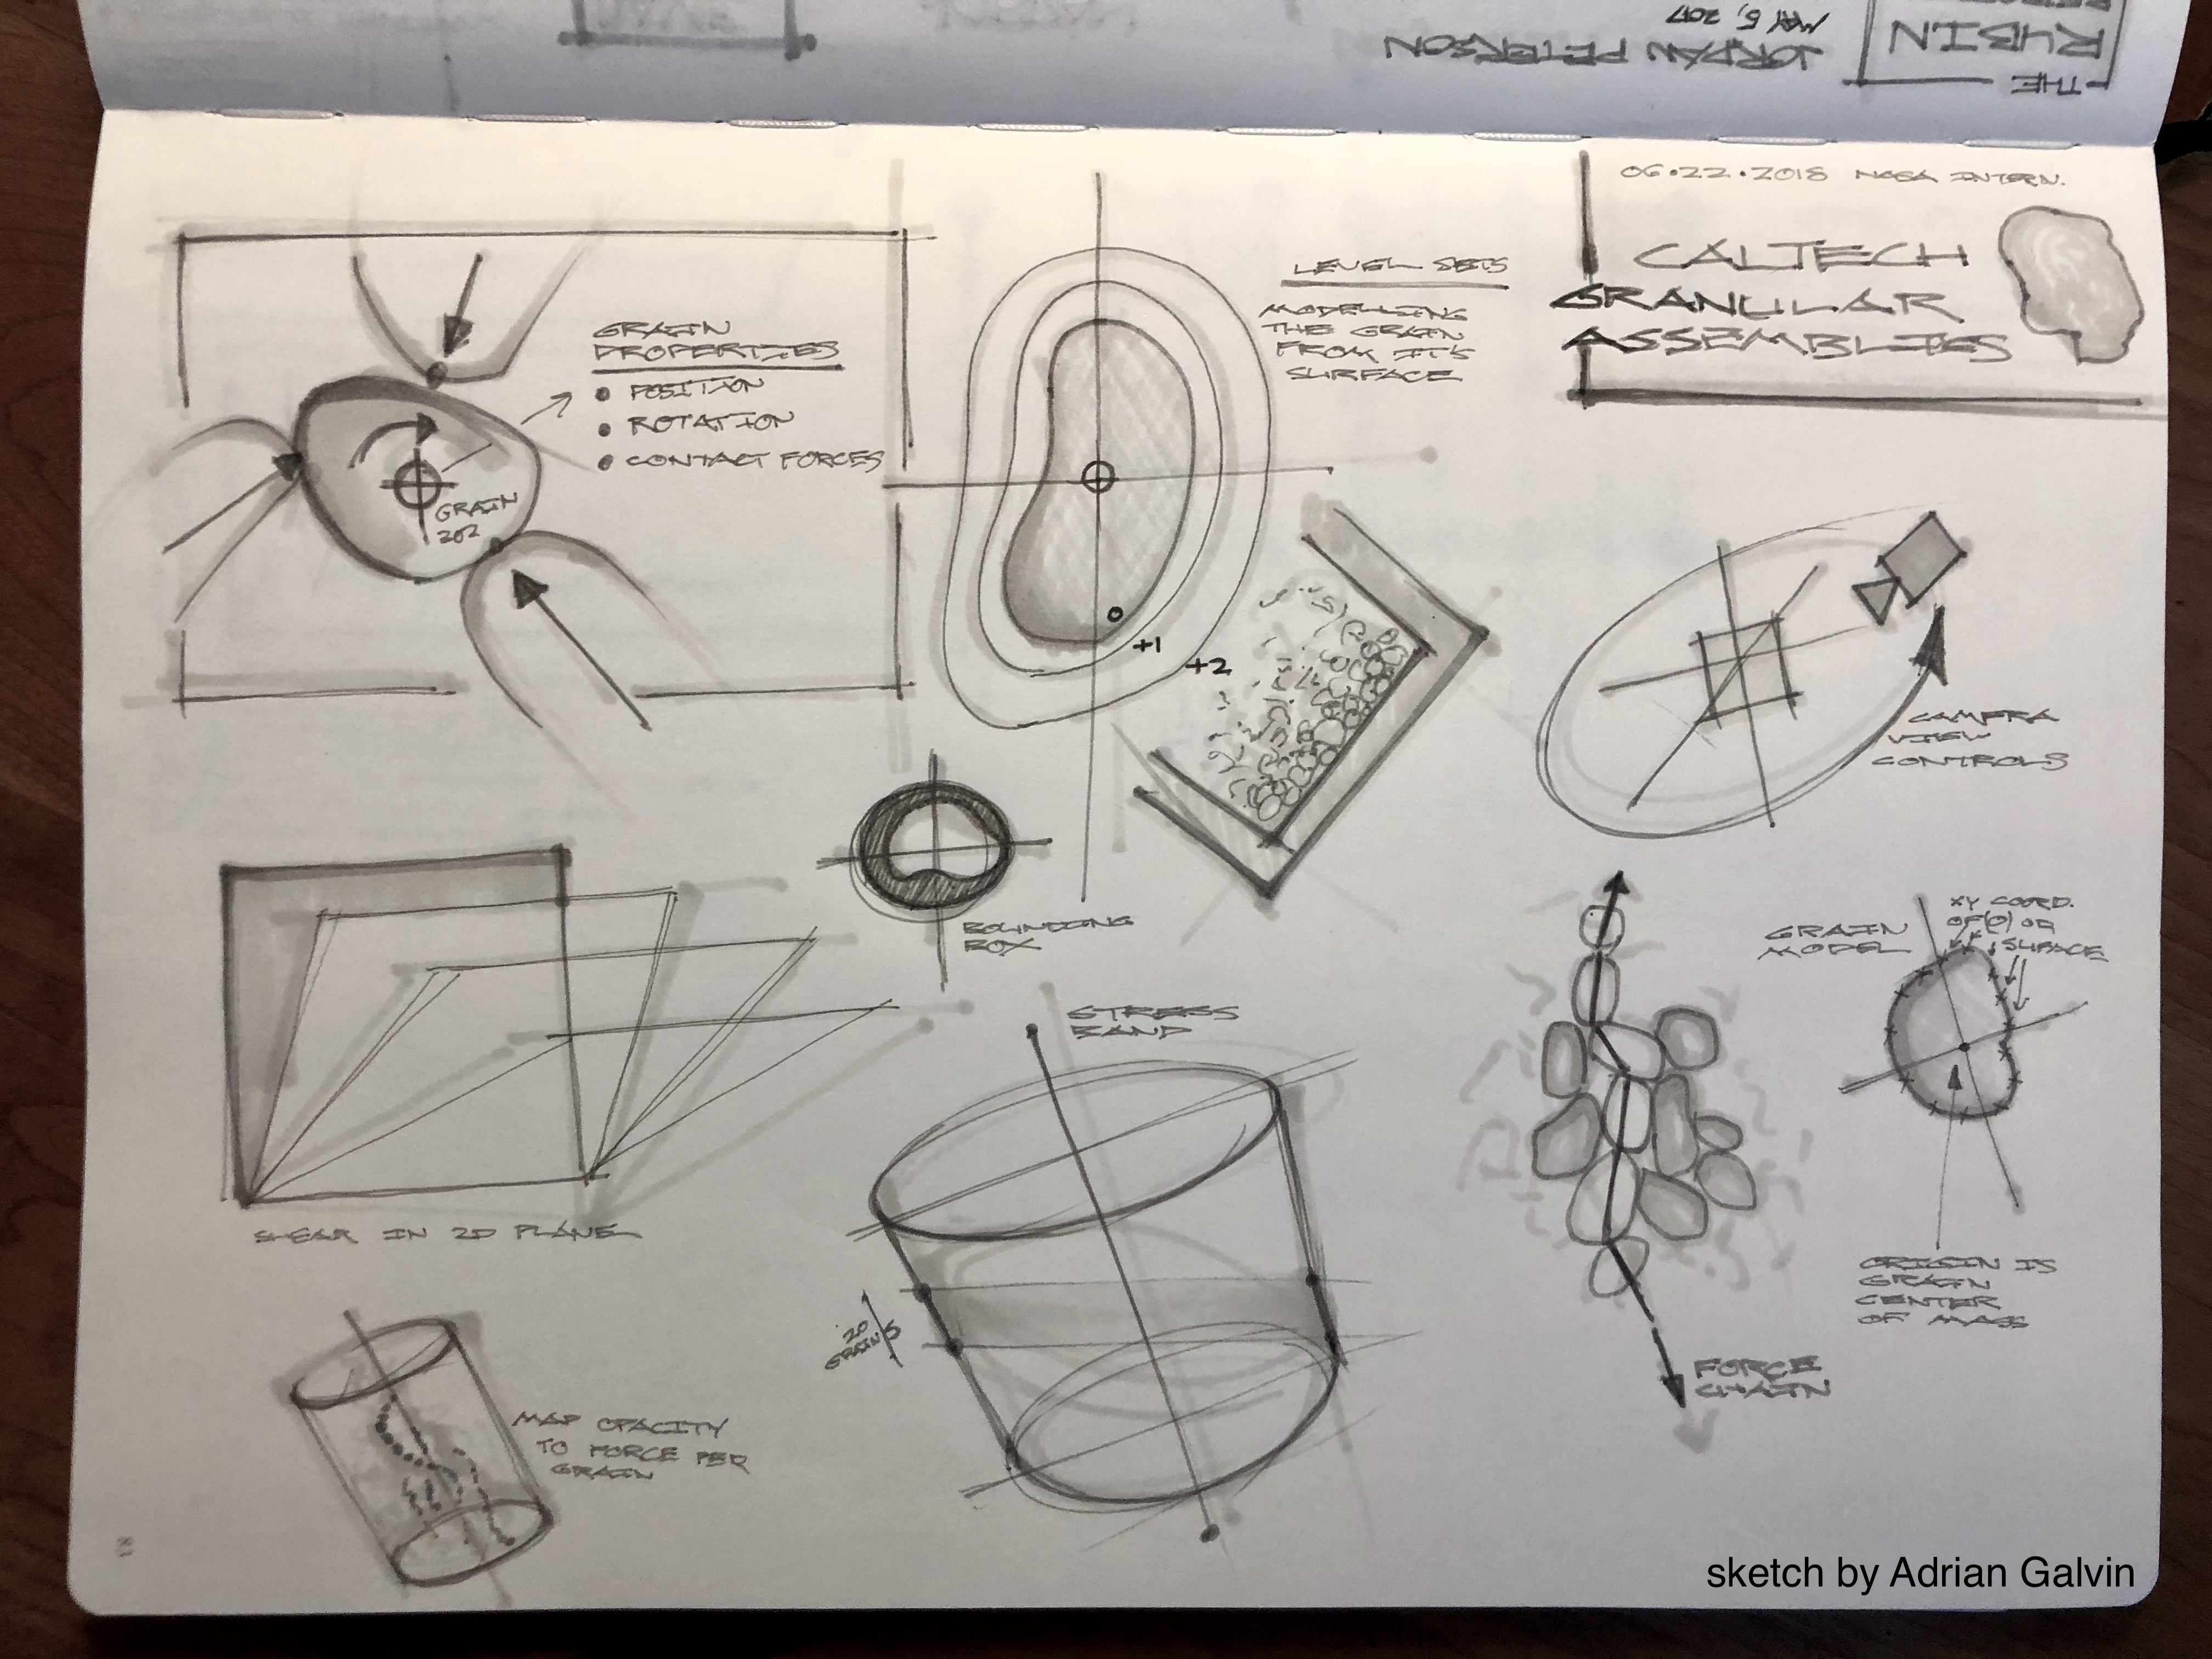 THE
RUBIN
JORDAN PETERSON
MAY 5, 2017
06.22.2018 NASA INTERN.
CALTECH
GRANULAR
ASSEMBLIES
GRAIN
PROPERTIES
• POSITION
• ROTATION
• CONTACT FORCES
GRAIN
202
LEVEL SETS
MODELLING
THE GRAIN
FROM IT'S
SURFACE
+1
+2
CAMERA
VIEW
CONTROLS
BOUNDING
BOX
SHEAR IN 2D PLANE
STRESS
BAND
20
GRAINS
GRAIN
MODEL
XY COORD.
OF (0) ON
SURFACE
ORIGIN IS
GRAIN
CENTER
OF MASS
FORCE
CHAIN
MAP OPACITY
TO FORCE PER
GRAIN
sketch by Adrian Galvin